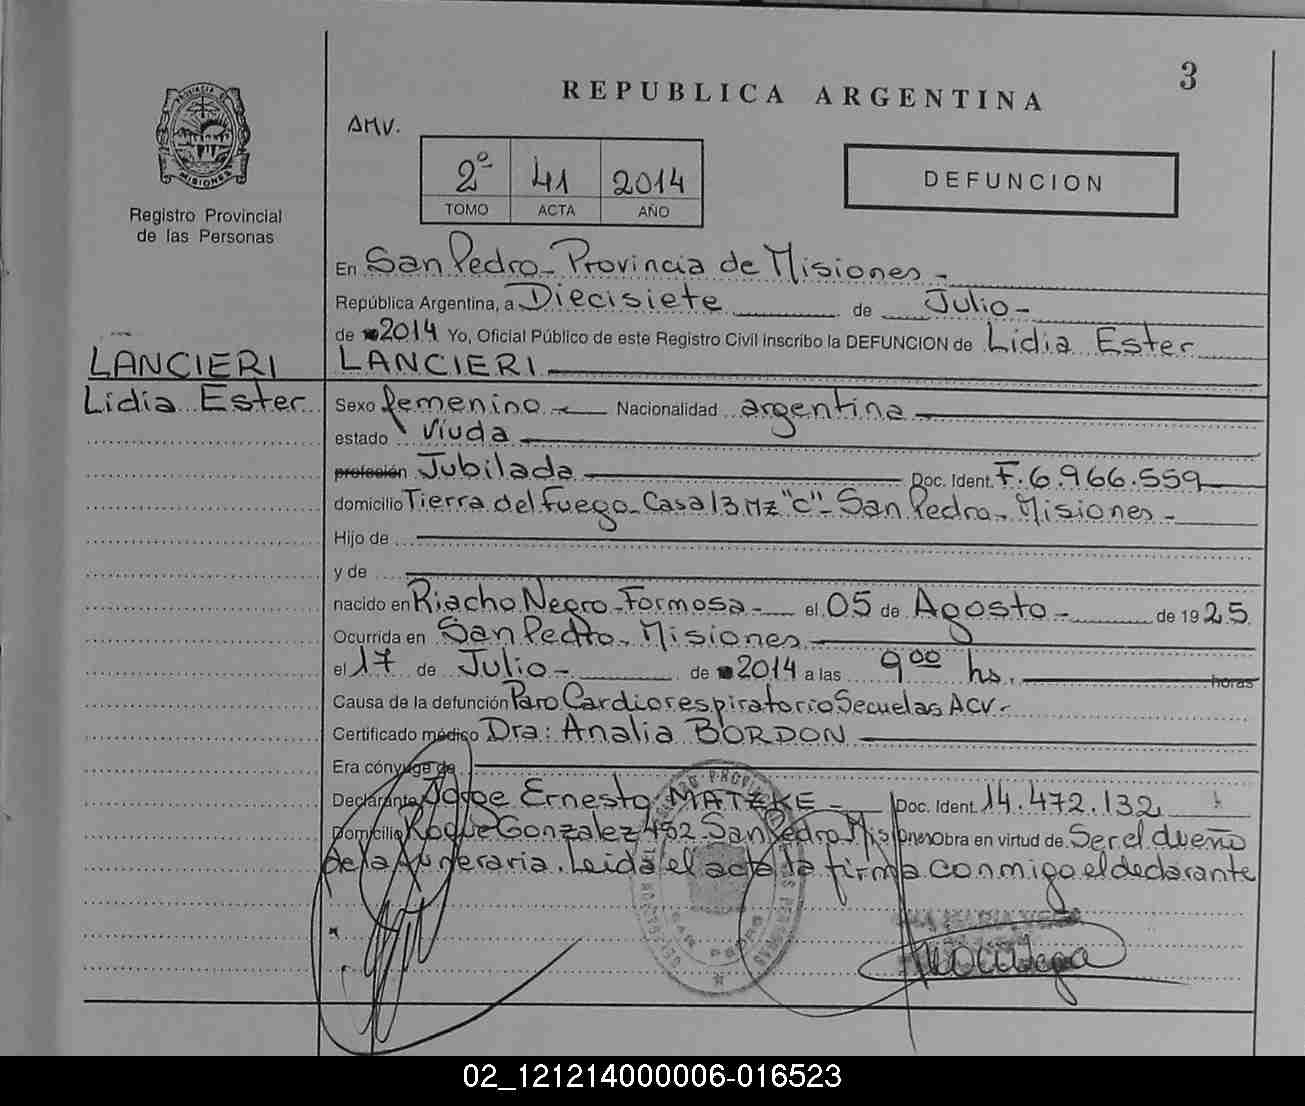 3
REPUBLICA ARGENTINA
AMV.
2º 41 2014
TOMO ACTA AÑO
DEFUNCION
MISIONES
Registro Provincial
de las Personas
En San Pedro - Provincia de Misiones -
República Argentina, a Diecisiete de Julio -
de 2014 Yo, Oficial Público de este Registro Civil inscribo la DEFUNCION de Lidia Ester
LANCIERI
LANCIERI
Lidia Ester
Sexo femenino - Nacionalidad argentina
estado Viuda
profesión Jubilada Doc. Ident. F. 6.966.559
domicilio Tierra del Fuego - Casa 13 Mz "C" - San Pedro - Misiones -
Hijo de
y de
nacido en Riacho Negro - Formosa - el 05 de Agosto - de 1925.
Ocurrida en San Pedro - Misiones
el 17 de Julio - de 2014 a las 9 00 hs. horas
Causa de la defunción Paro Cardiorespiratorio Secuelas ACV -
Certificado médico Dra: Analia BORDON
Era cónyuge de
Declarante Jorge Ernesto MATZKE - Doc. Ident. 14.472.132
Domicilio Roque Gonzalez 482 - San Pedro Misiones Obra en virtud de Ser el dueño
de la funeraria. Leida el acta la firma conmigo el declarante
SAN PEDRO
02_121214000006-016523